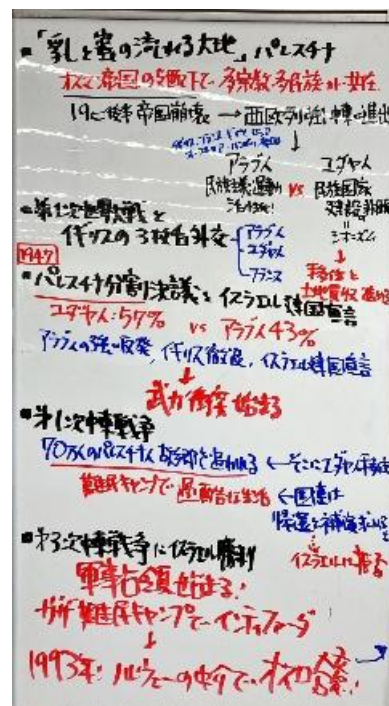 ■「乳と蜜の流れる大地」パレスチナ
オスマン帝国の支配下で多宗教多民族が共存
19C後半帝国崩壊 → 西欧列強中東進出
アラブ人 ユダヤ人
民族主義運動 vs 民族国家
活性化! 建設計画
シオニズム
■第1次世界大戦と
イギリスの3枚舌外交 アラブ人
ユダヤ人
フランス
移住と
土地買収進める
1947
■パレスチナ分割決議とイスラエル建国宣言
ユダヤ人:57% vs アラブ人43%
アラブ人の強い反発、イギリス撤退、イスラエル建国宣言
↓
武力衝突始まる
■第1次中東戦争
70万人のパレスチナ人故郷を追われる ← そこにユダヤ人移住
難民キャンプで過酷な生活 ← 国連は
帰還と補償求める
■第3次中東戦争にイスラエル勝利
イスラエルは拒否
軍事占領始まる!
ガザ難民キャンプでインティファーダ
↓
1993年:ノルウェーの仲介でオスロ合意